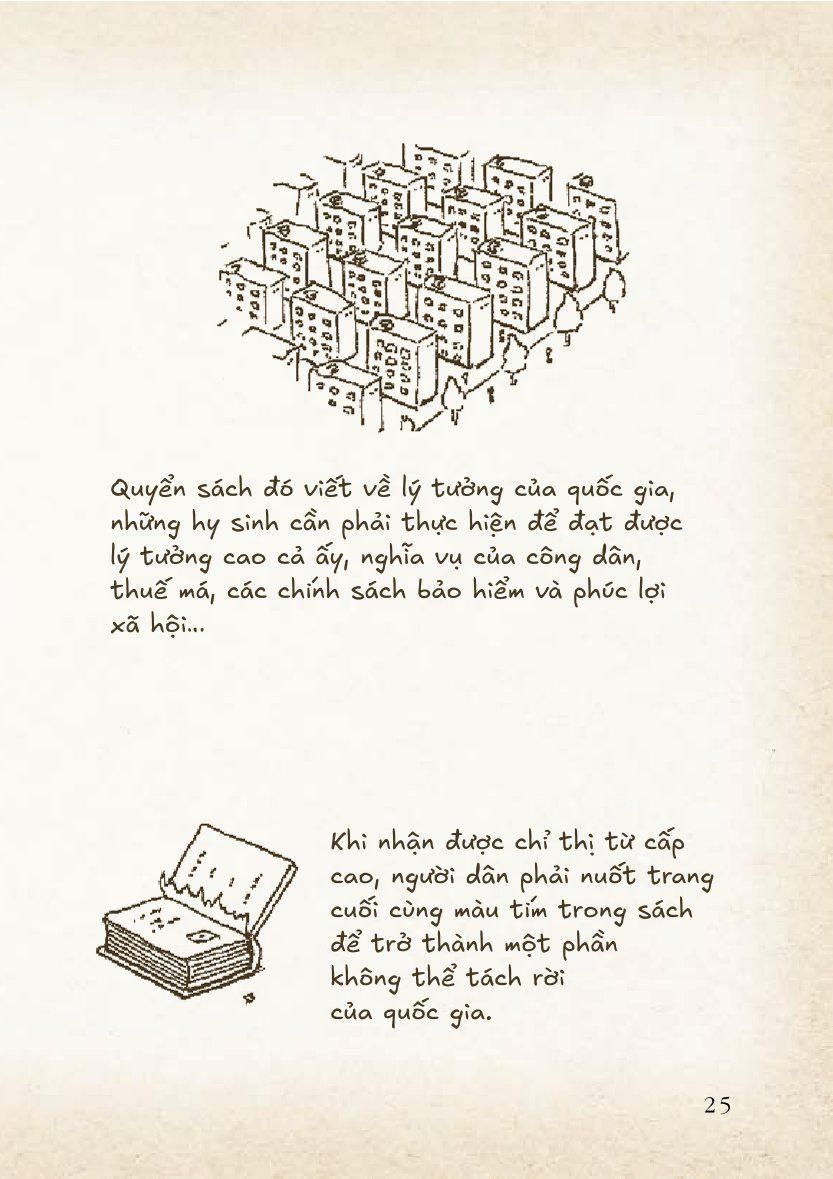 Quyển sách đó viết về lý tưởng của quốc gia,
những hy sinh cần phải thực hiện để đạt được
lý tưởng cao cả ấy, nghĩa vụ của công dân,
thuế má, các chính sách bảo hiểm và phúc lợi
xã hội...
Khi nhận được chỉ thị từ cấp
cao, người dân phải nuốt trang
cuối cùng màu tím trong sách
để trở thành một phần
không thể tách rời
của quốc gia.
25